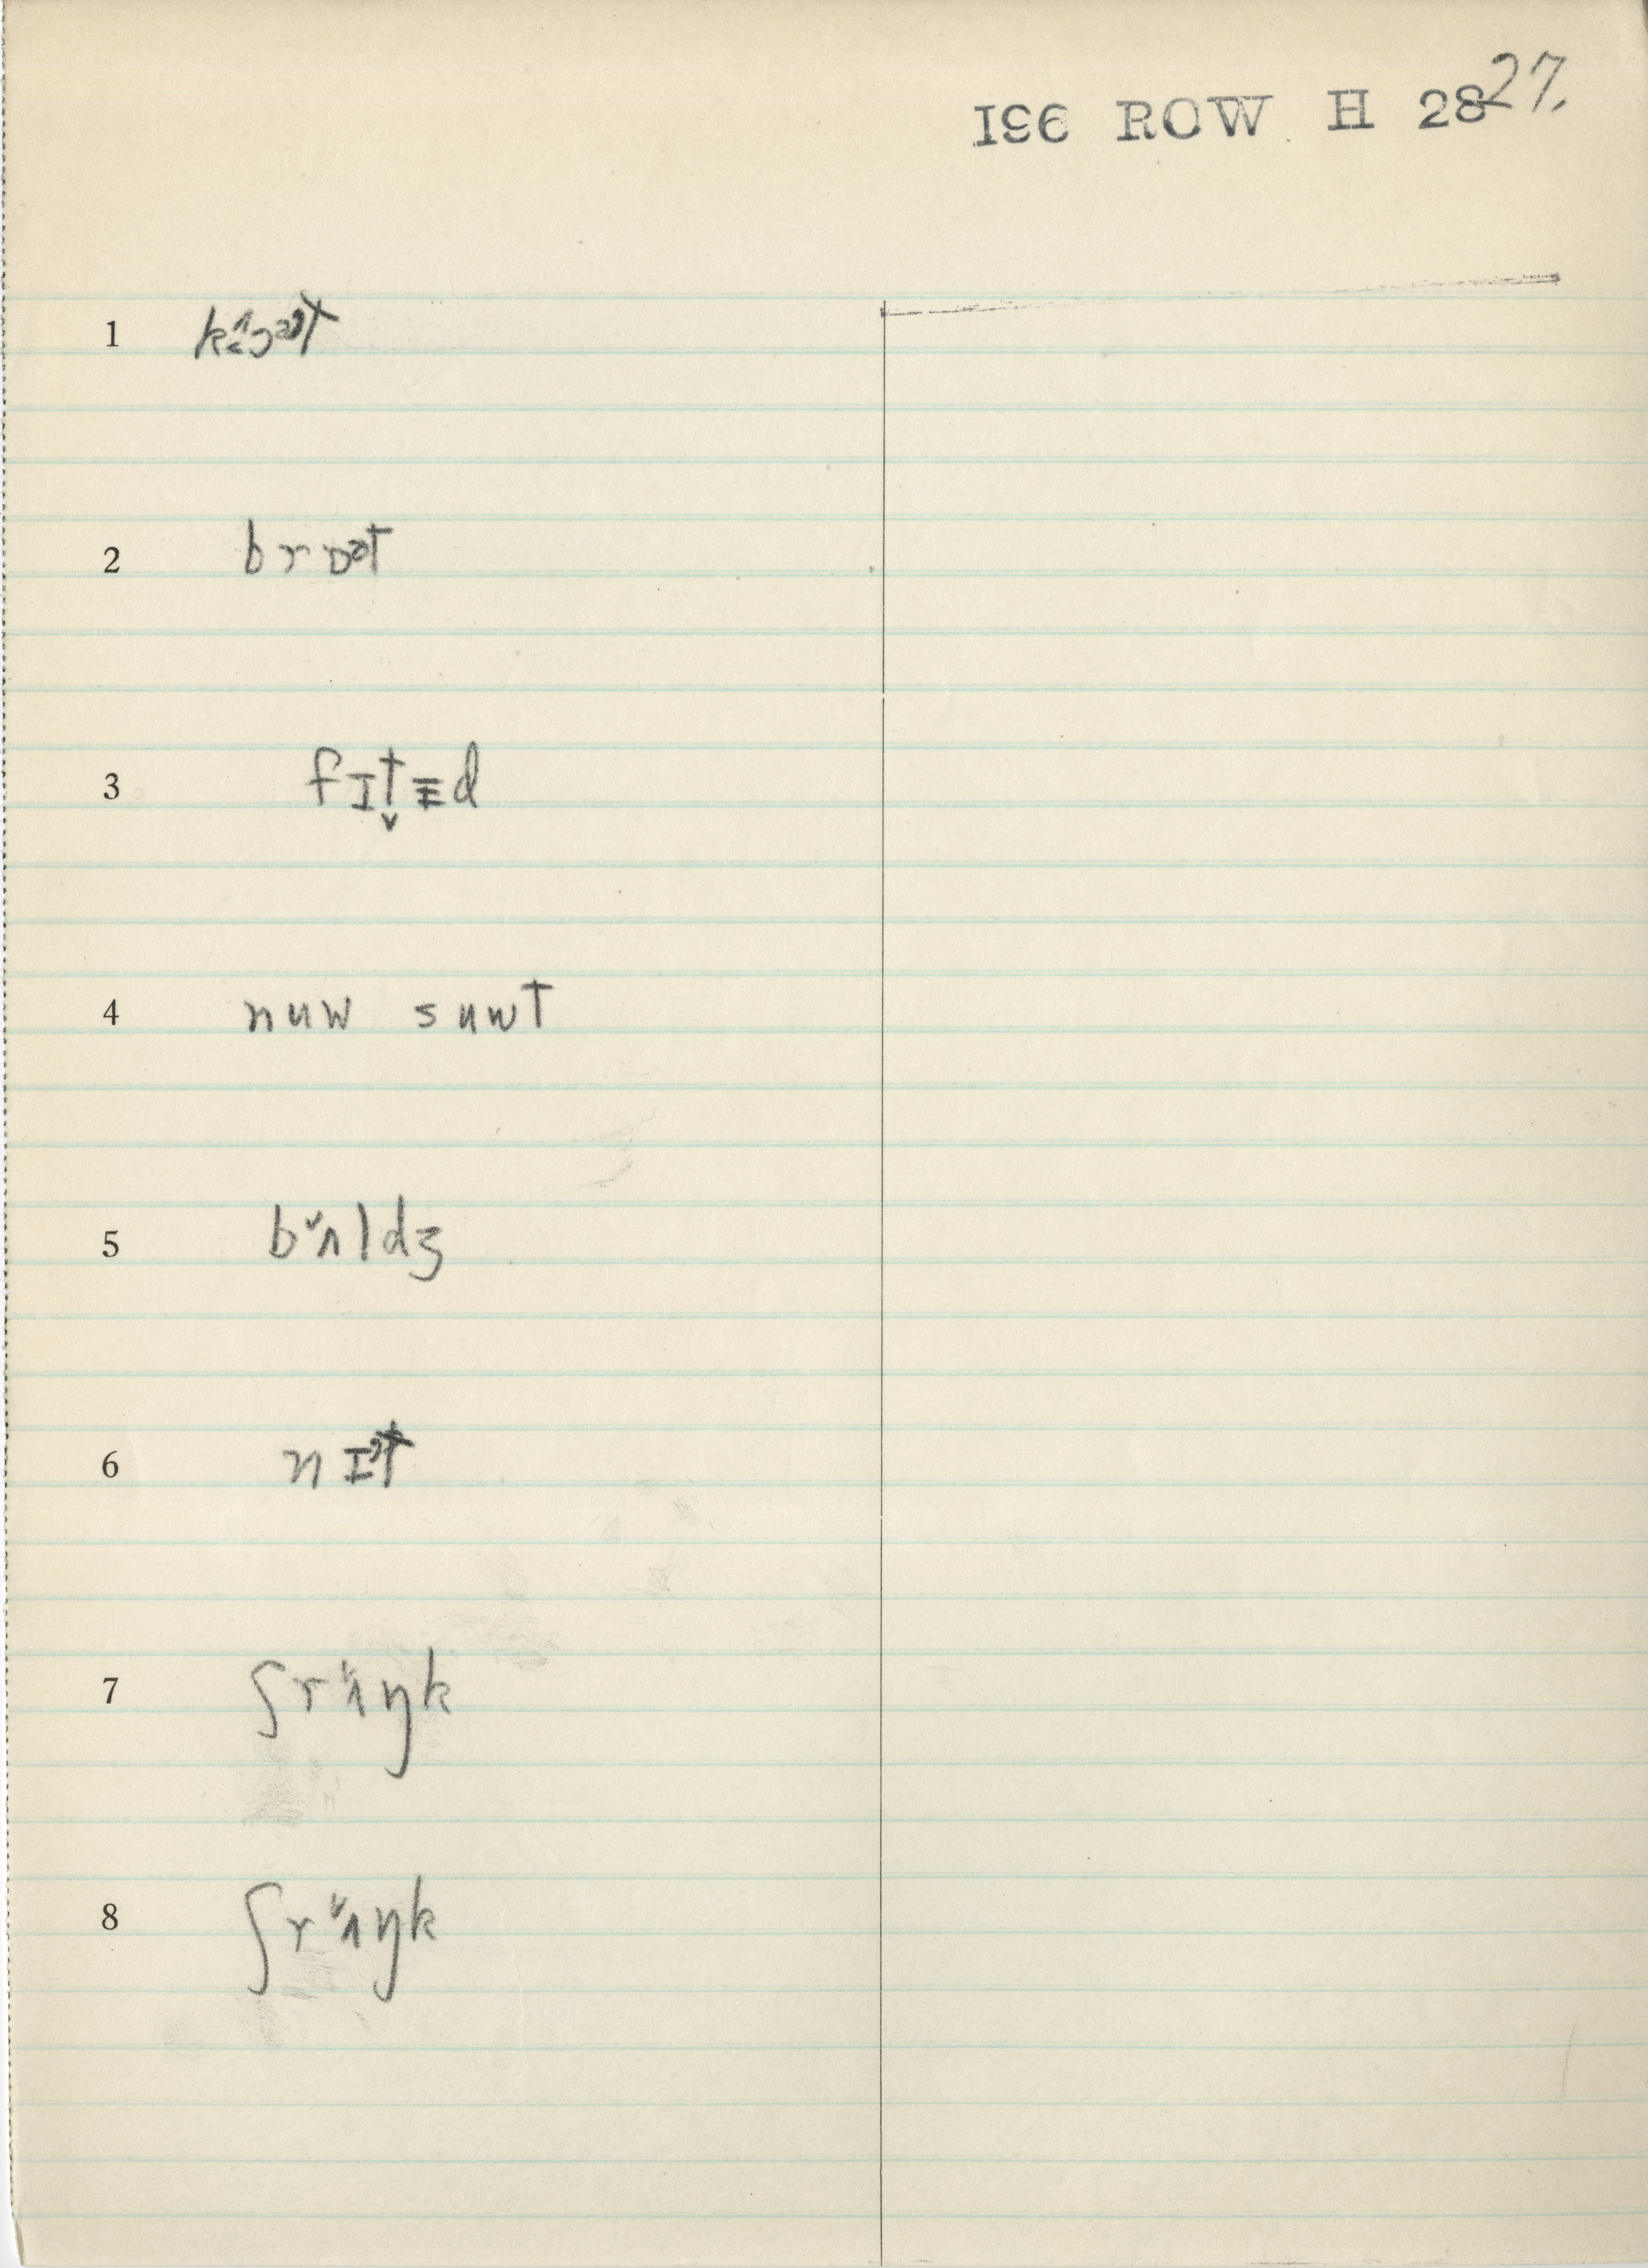 I96 ROW H 28 27.
1
2 brɒᵊt
3 fɪt̬ɛd
4 nuw suwt
5 bʌ̌ldʒ
6 nɪᵊt
7 ʃrʌ̌ŋk
8 ʃrʌ̌ŋk